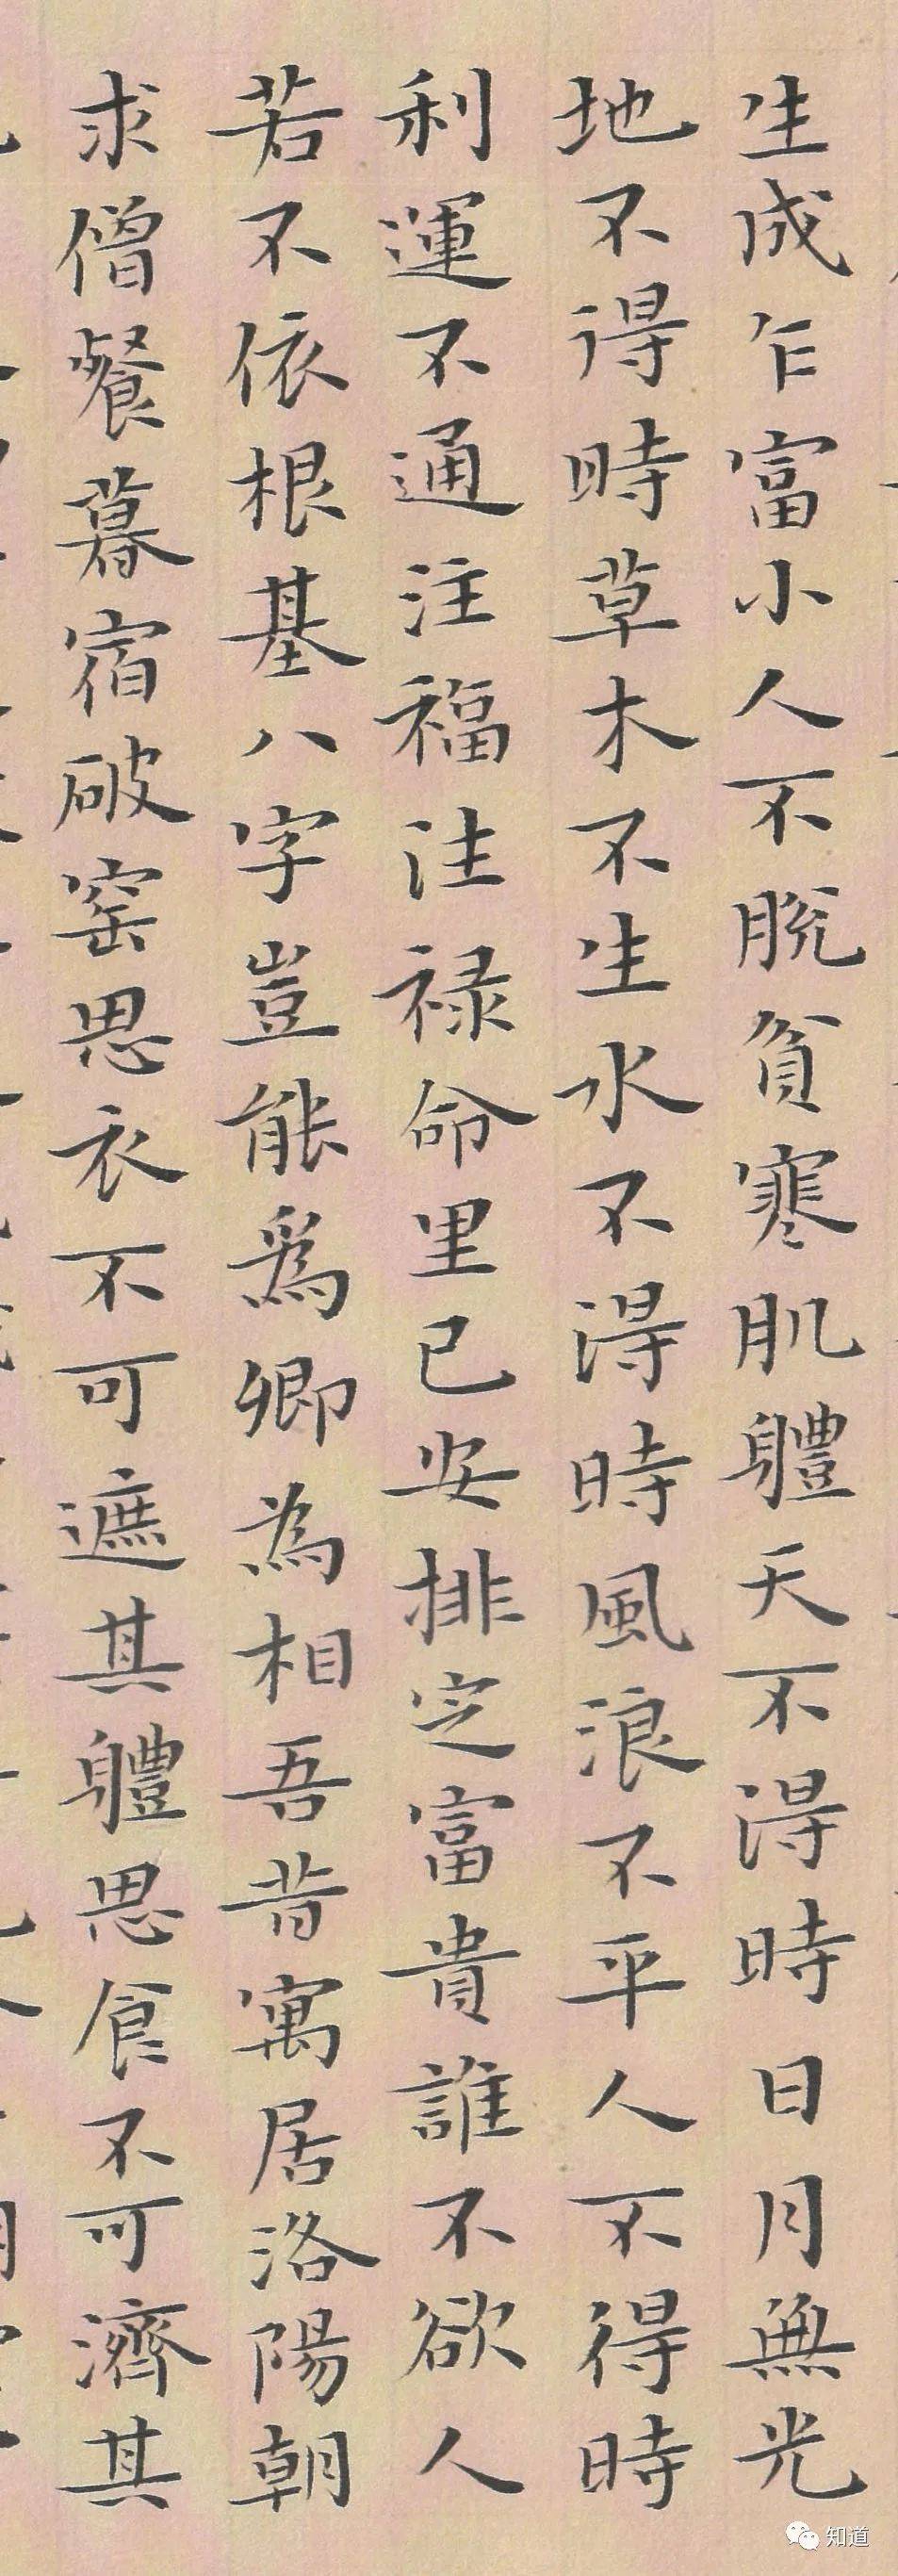 生成乍富小人不脫貧寒肌體天不得時日月無光
地不得時草木不生水不得時風浪不平人不得時
利運不通注福注禄命里已安排定富貴誰不欲人
若不依根基八字豈能爲卿為相吾昔寓居洛陽朝
求僧餐暮宿破窑思衣不可遮其體思食不可濟其
知道